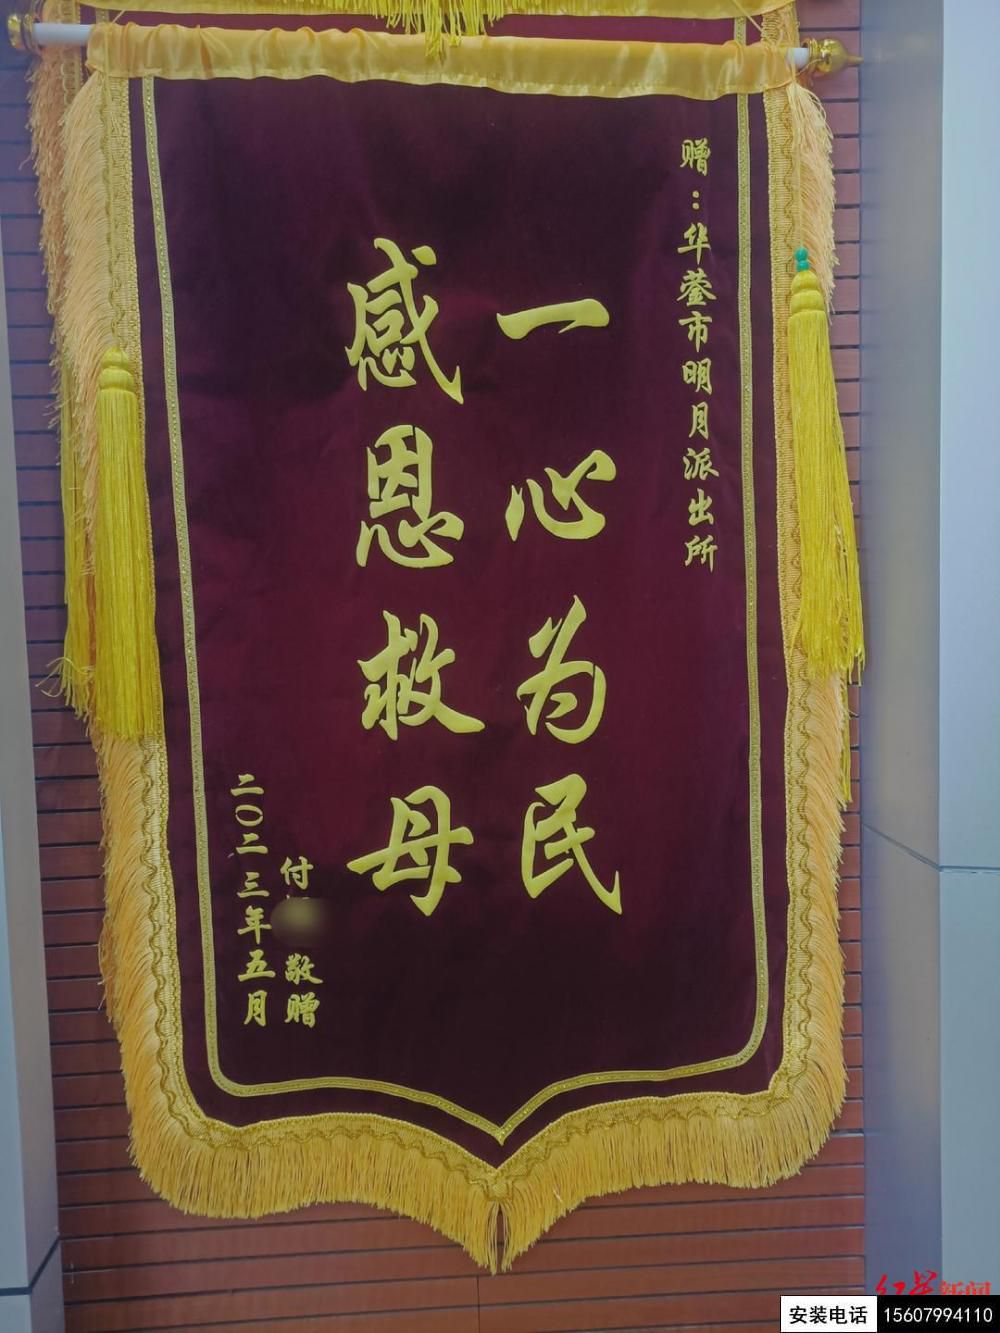 赠：华蓥市明月派出所
一心为民
感恩救母
付 敬赠
二〇二三年五月
红星新闻
安装电话 15607994110